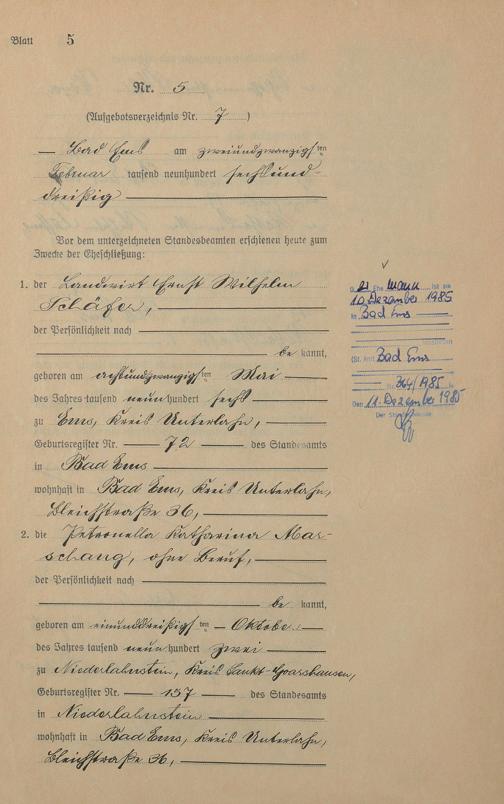 Blatt 5
Nr. 5
(Aufgebotsverzeichnis Nr. 7)
Bad Ems am zweiundzwanzigsten
Februar tausend neunhundert sechsund-
dreißig
Vor dem unterzeichneten Standesbeamten erschienen heute zum
Zwecke der Eheschließung:
1. der Landwirt Ernst Wilhelm
Schäfer,
der Persönlichkeit nach
be kannt,
geboren am achtundzwanzigsten Mai
des Jahres tausend neunhundert sechs
zu Ems, Kreis Unterlahn,
Geburtsregister Nr. 72 des Standesamts
in Bad Ems
wohnhaft in Bad Ems, Kreis Unterlahn,
Bleichstraße 36,
2. die Petronella Katharina Mar-
schang, ohne Beruf,
der Persönlichkeit nach
be kannt,
geboren am einunddreißigsten Oktober
des Jahres tausend neunhundert zwei
zu Niederlahnstein, Kreis Sankt-Goarshausen,
Geburtsregister Nr. 157 des Standesamts
in Niederlahnstein
wohnhaft in Bad Ems, Kreis Unterlahn,
Bleichstraße 36,
Ehemann ist am
10. Dezember 1985
in Bad Ems
(St. Amt Bad Ems
Nr. 364/1985
Den 11. Dezember 1985
Der Standesbeamte